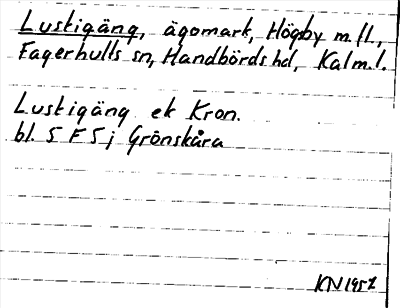 Lustigäng, ägomark, Högby m.fl.,
Fagerhults sn, Handbörds hd, Kalm.l.
Lustigäng ek Kron.
bl. 5 F 5 j Grönskåra
KN 1957